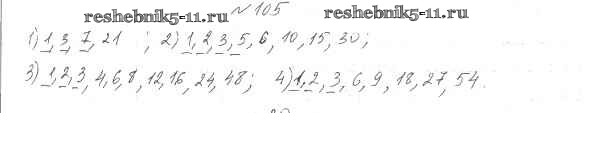 reshebnik5-11.ru № 105 reshebnik5-11.ru
1) 1, 3, 7, 21 ; 2) 1, 2, 3, 5, 6, 10, 15, 30;
3) 1, 2, 3, 4, 6, 8, 12, 16, 24, 48; 4) 1, 2, 3, 6, 9, 18, 27, 54.